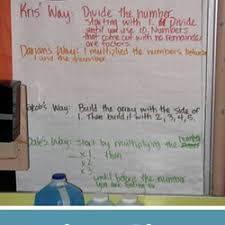 Kris' Way: Divide the number
starting with 1. Divide
until you use 10. Numbers
that come out with no remainder
are factors.
Way: I multiplied the numbers between
1 and the number.
Jacob's Way: Build the array with the side of
1. Then build it with 2, 3, 4, 5.
Dale's Way: start by multiplying the number
x 1 then
x 2
x 3
until before the number
you are